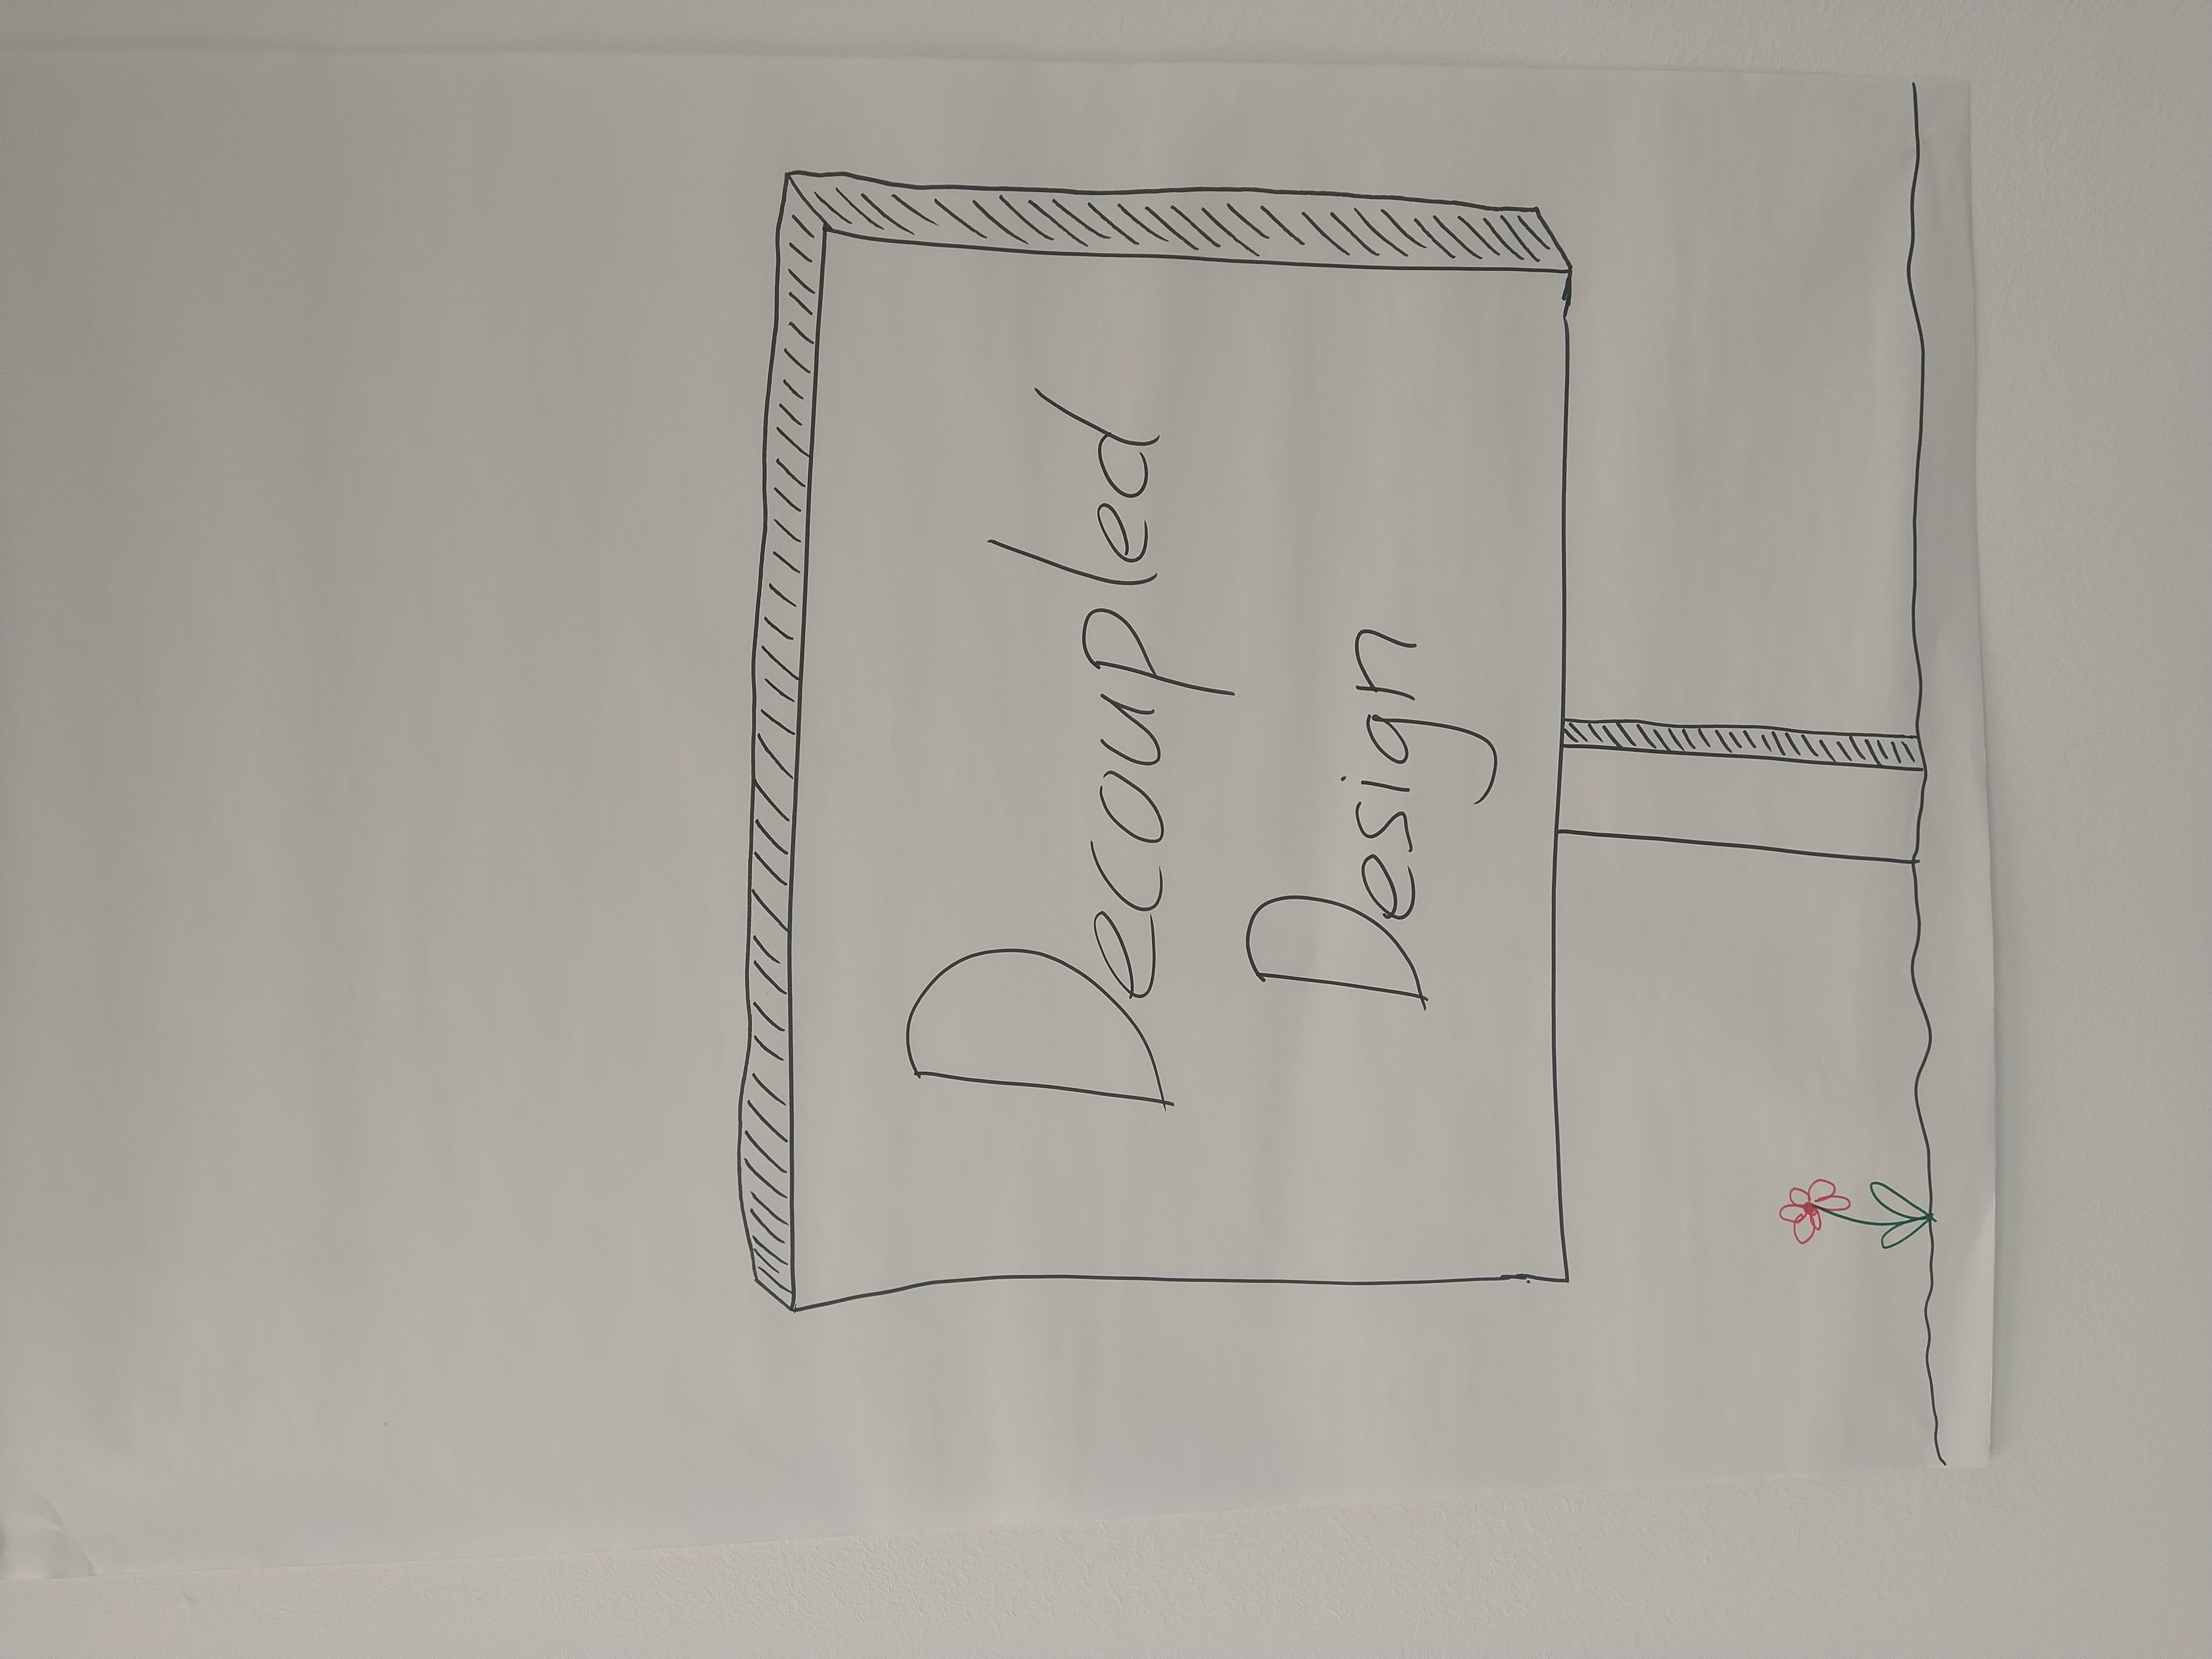 Decoupled
Design